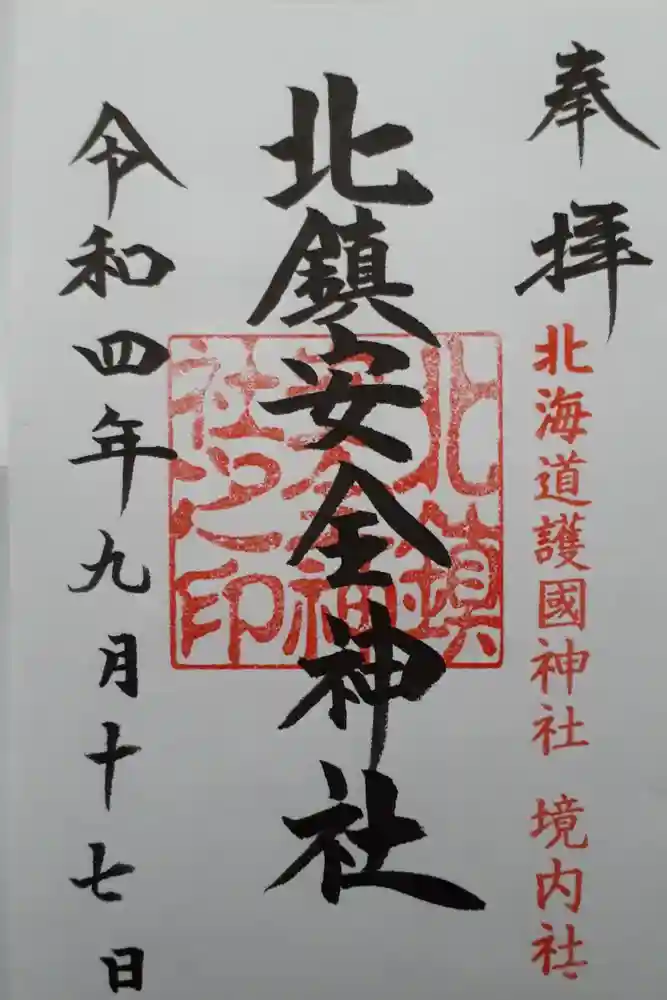 奉拝
北海道護國神社 境内社
北鎮安全神社
北鎮
安全神
社之印
令和四年九月十七日